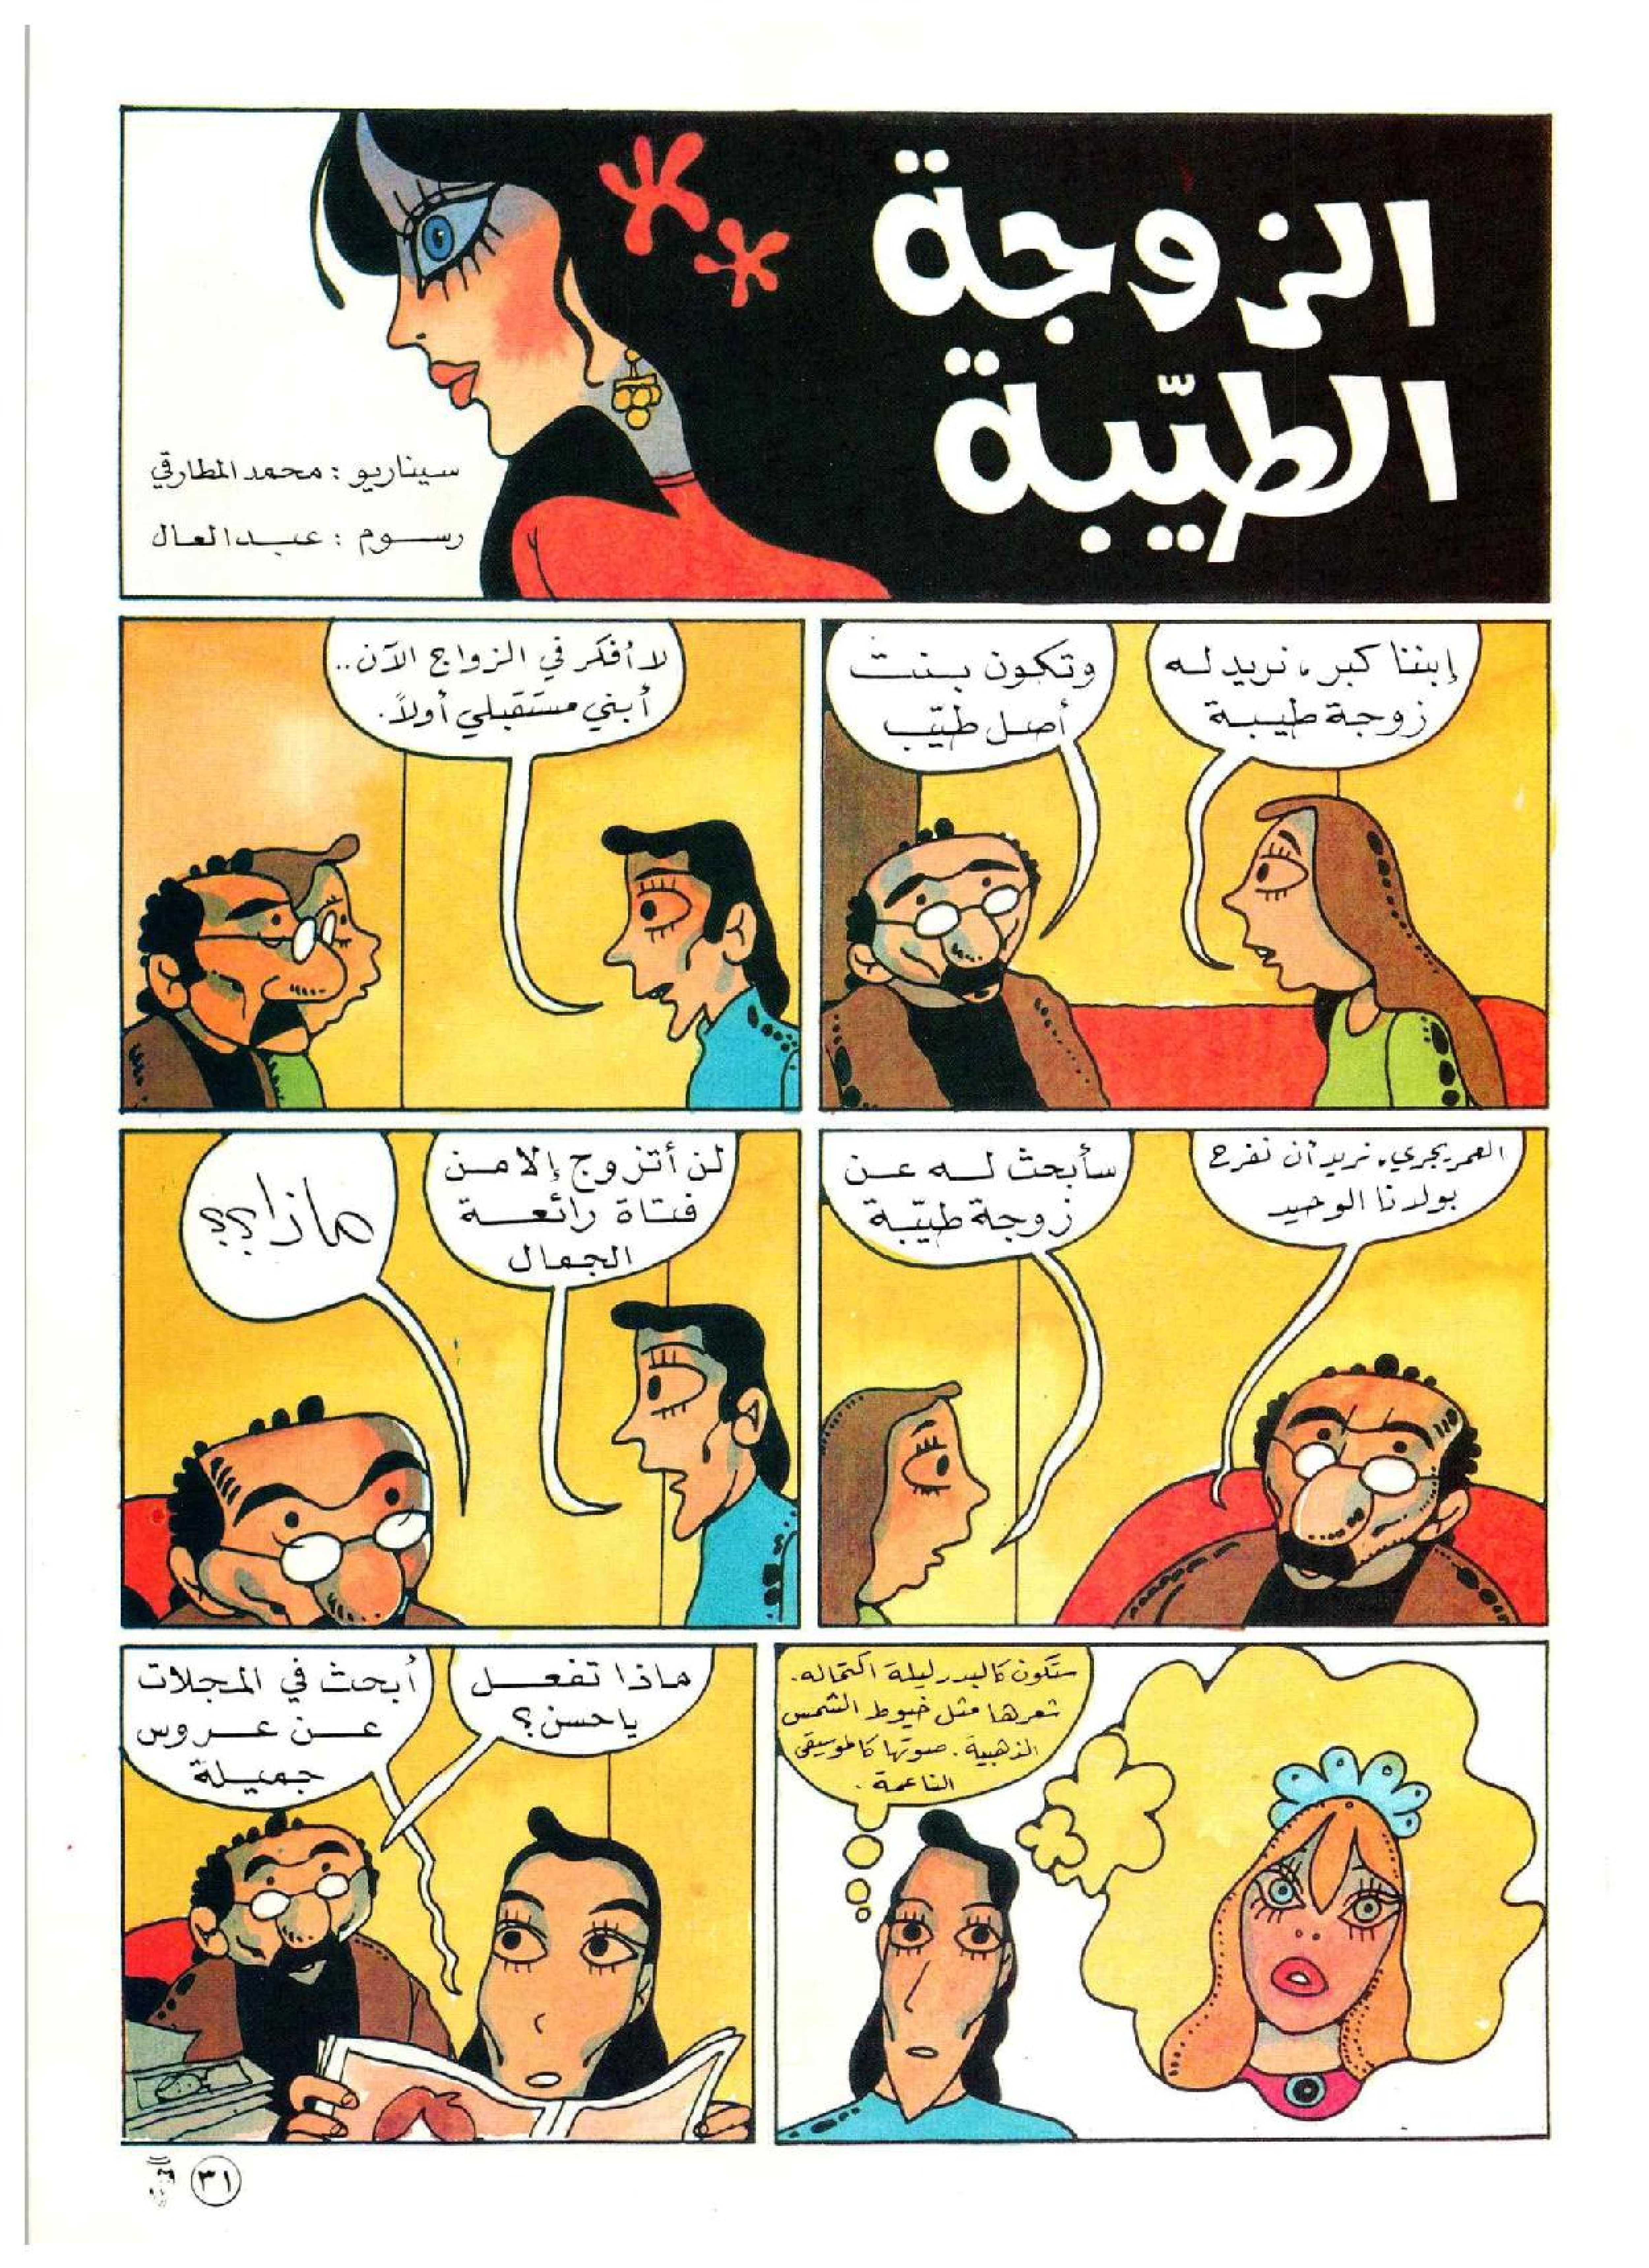 الزوجة
الطيّبة
سيناريو : محمد المطارقي
رسوم : عبد العال
إبننا كبر، نريد له
زوجة طيبة
وتكون بنت
أصل طيّب
لا أفكر في الزواج الآن..
أبني مستقبلي أولاً.
العمر يجري، نريد أن نفرح
بولدنا الوحيد
سأبحث له عن
زوجة طيّبة
لن أتزوج إلا من
فتاة رائعة
الجمال
ماذا؟؟
ستكون كالبدر ليلة اكتماله.
شعرها مثل خيوط الشمس
الذهبية. صوتها كالموسيقى
الناعمة.
ماذا تفعل
يا حسن؟
أبحث في المجلات
عن عروس
جميلة
٣١